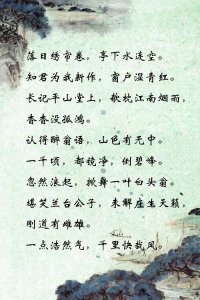 落日绣帘卷，亭下水连空。
知君为我新作，窗户湿青红。
长记平山堂上，欹枕江南烟雨，
杳杳没孤鸿。
认得醉翁语，山色有无中。
一千顷，都镜净，倒碧峰。
忽然浪起，掀舞一叶白头翁。
堪笑兰台公子，未解庄生天籁，
刚道有雌雄。
一点浩然气，千里快哉风。